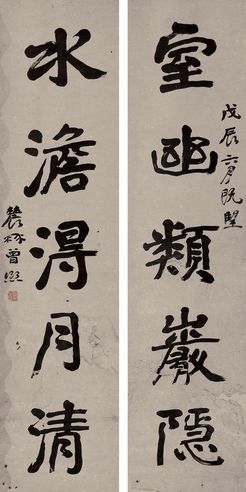 室幽類巖隱
戊辰六月既望
水澹得月清
農髯曾熙